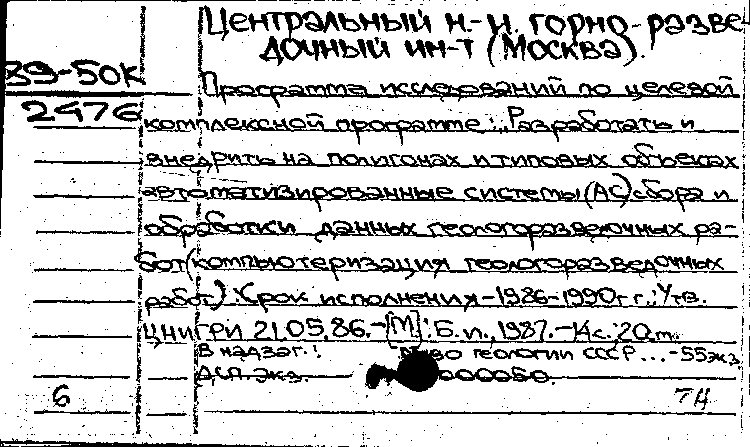 Центральный н.-и. горно-разве-
дочный ин-т (Москва).
89-50к
Программа исследований по целевой
2476
комплексной программе: "Разработать и
внедрить на полигонах и типовых объектах
автоматизированные системы (АС) сбора и
обработки данных геологоразведочных ра-
бот (компьютеризация геологоразведочных
работ). Срок исполнения - 1986-1990 г г.; Утв.
ЦНИГРИ 21.05.86. - [М]: Б. и., 1987. - 14 с. 20 см.
В надзаг.: М-во геологии СССР... - 55 экз.
ДСП. Экз. 000050.
6
7А